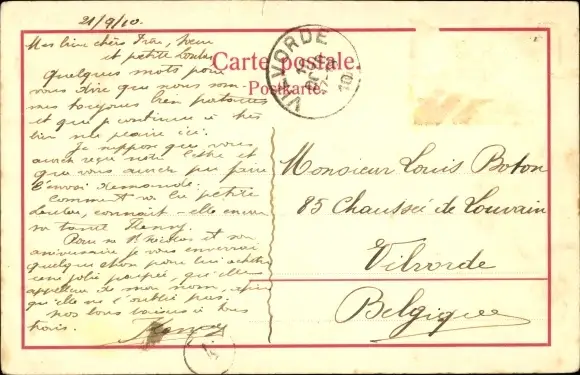 21/9/10.
Mes bien chers Frère, Soeur
et petite Loulou
Quelques mots pour
vous dire que nous som-
mes toujours bien portants
et que continue à très
bien me plaire ici.
Je suppose que vous
aurez reçu notre lettre et
que vous aurez pu faire
l'envoi demandé.
Comment va la petite
Loulou, connait-elle encore
sa tante
Pour sa St Nicolas et son
anniversaire je vous enverrai
quelque chose pour lui acheter
une jolie poupée, qu'elle
appellera de mon nom, afin
qu'elle ne m'oublie pas.
nos bons baisers à tous
trois.
Carte postale.
Postkarte.
VILVORDE
10
Monsieur Louis Boton
85 Chaussée de Louvain
Vilvorde
Belgique